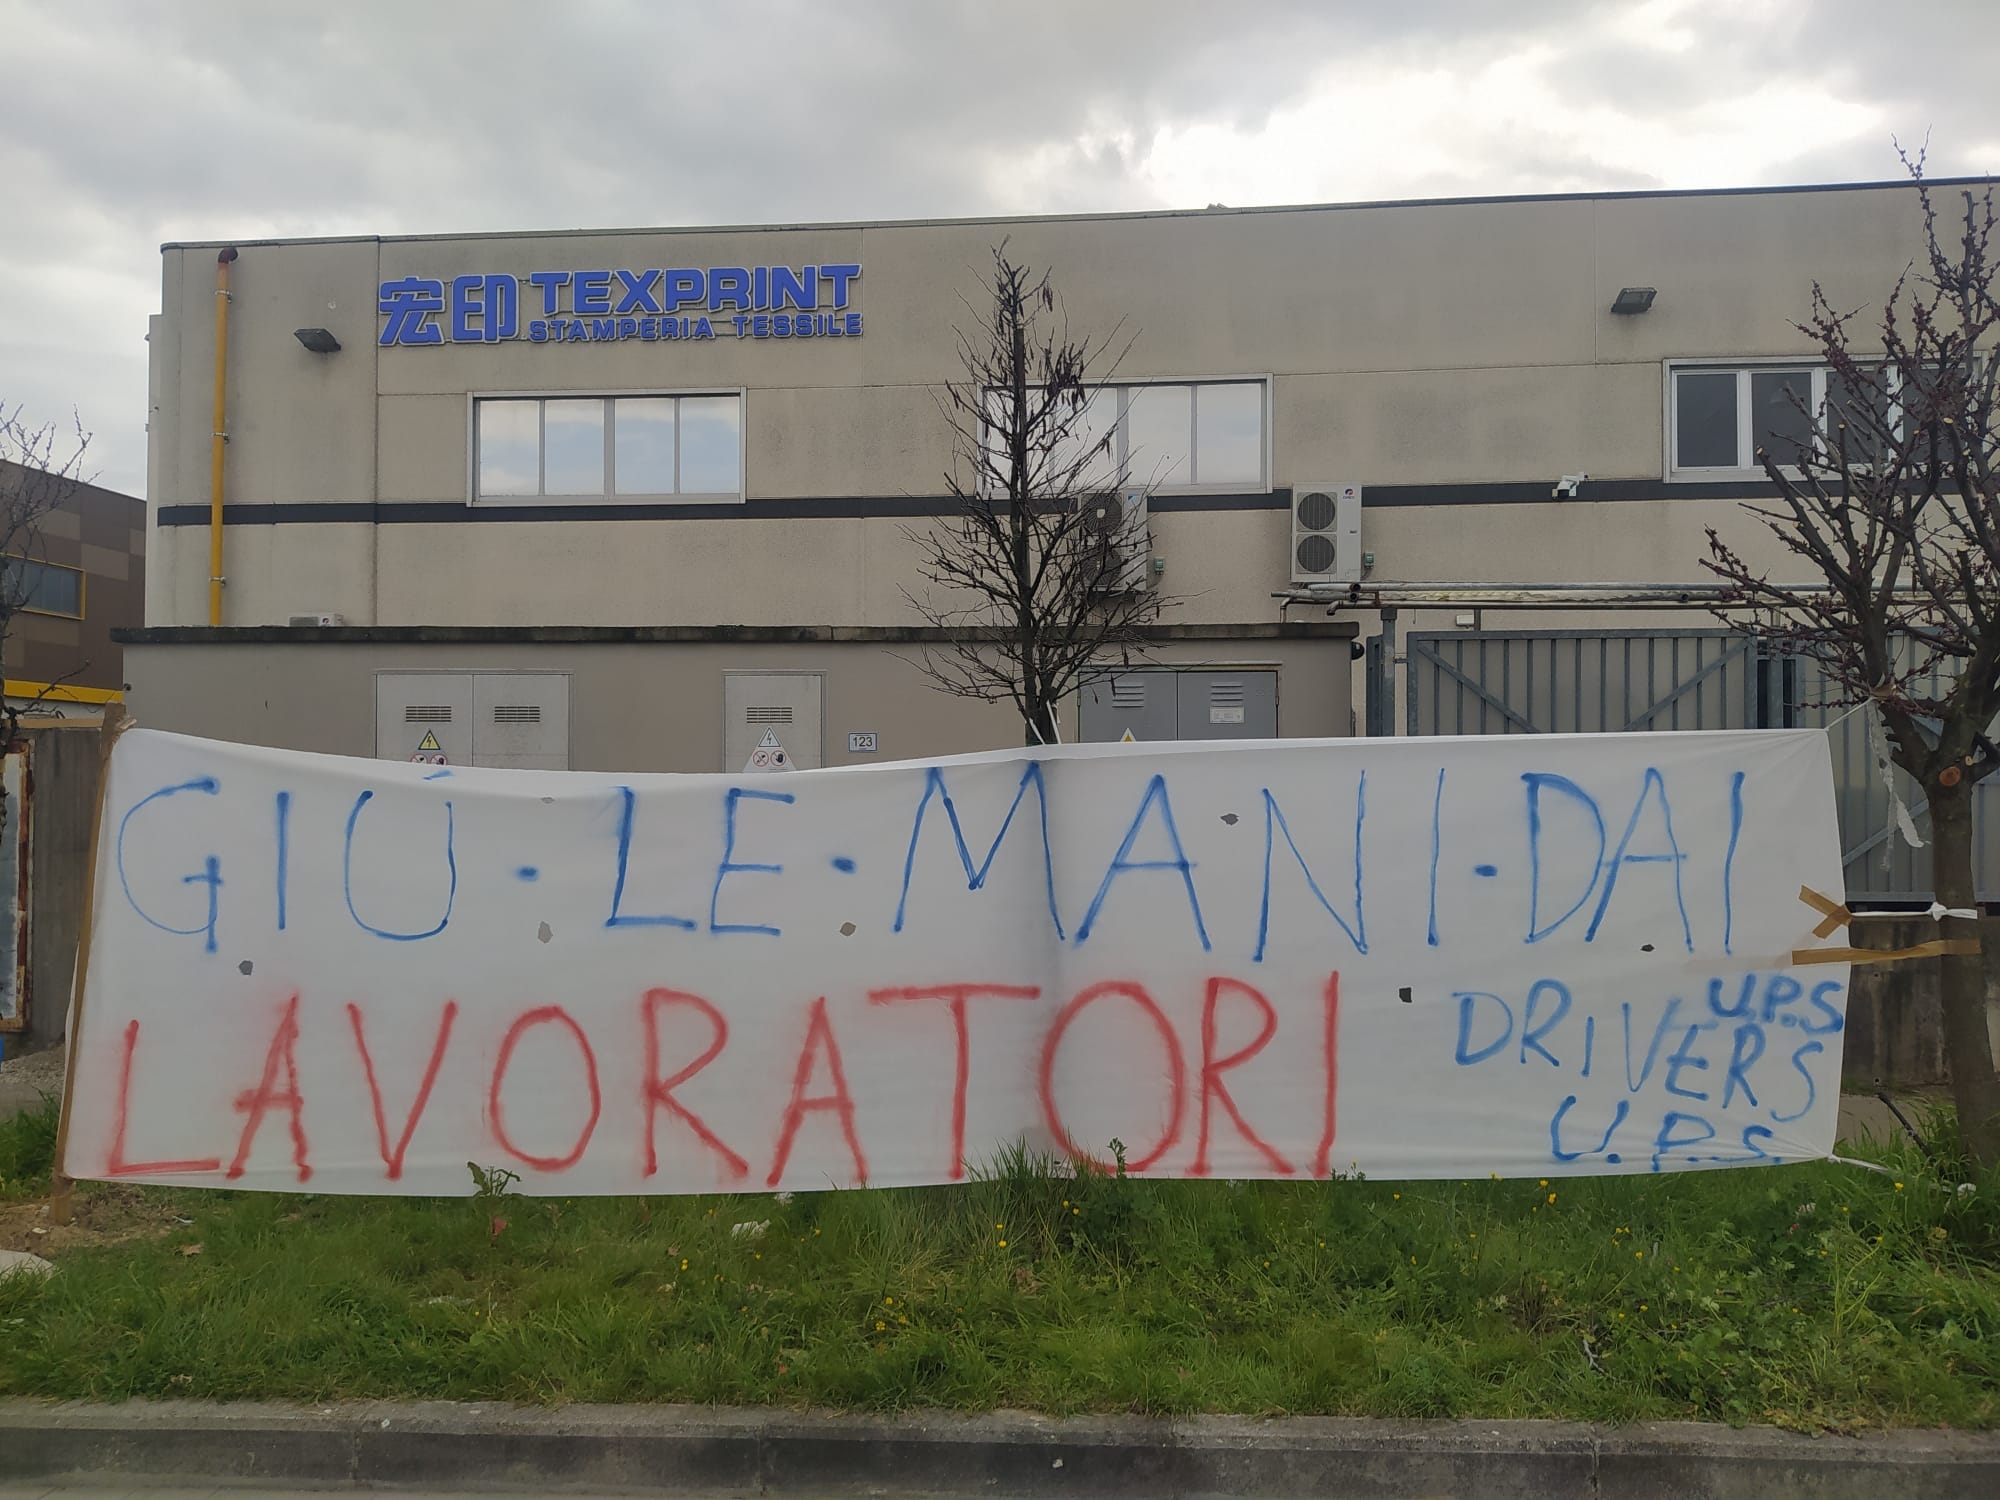 宏印 TEXPRINT
STAMPERIA TESSILE
123
GIÚ·LE·MANI·DAI
LAVORATORI
U.P.S
DRIVERS
U.P.S.